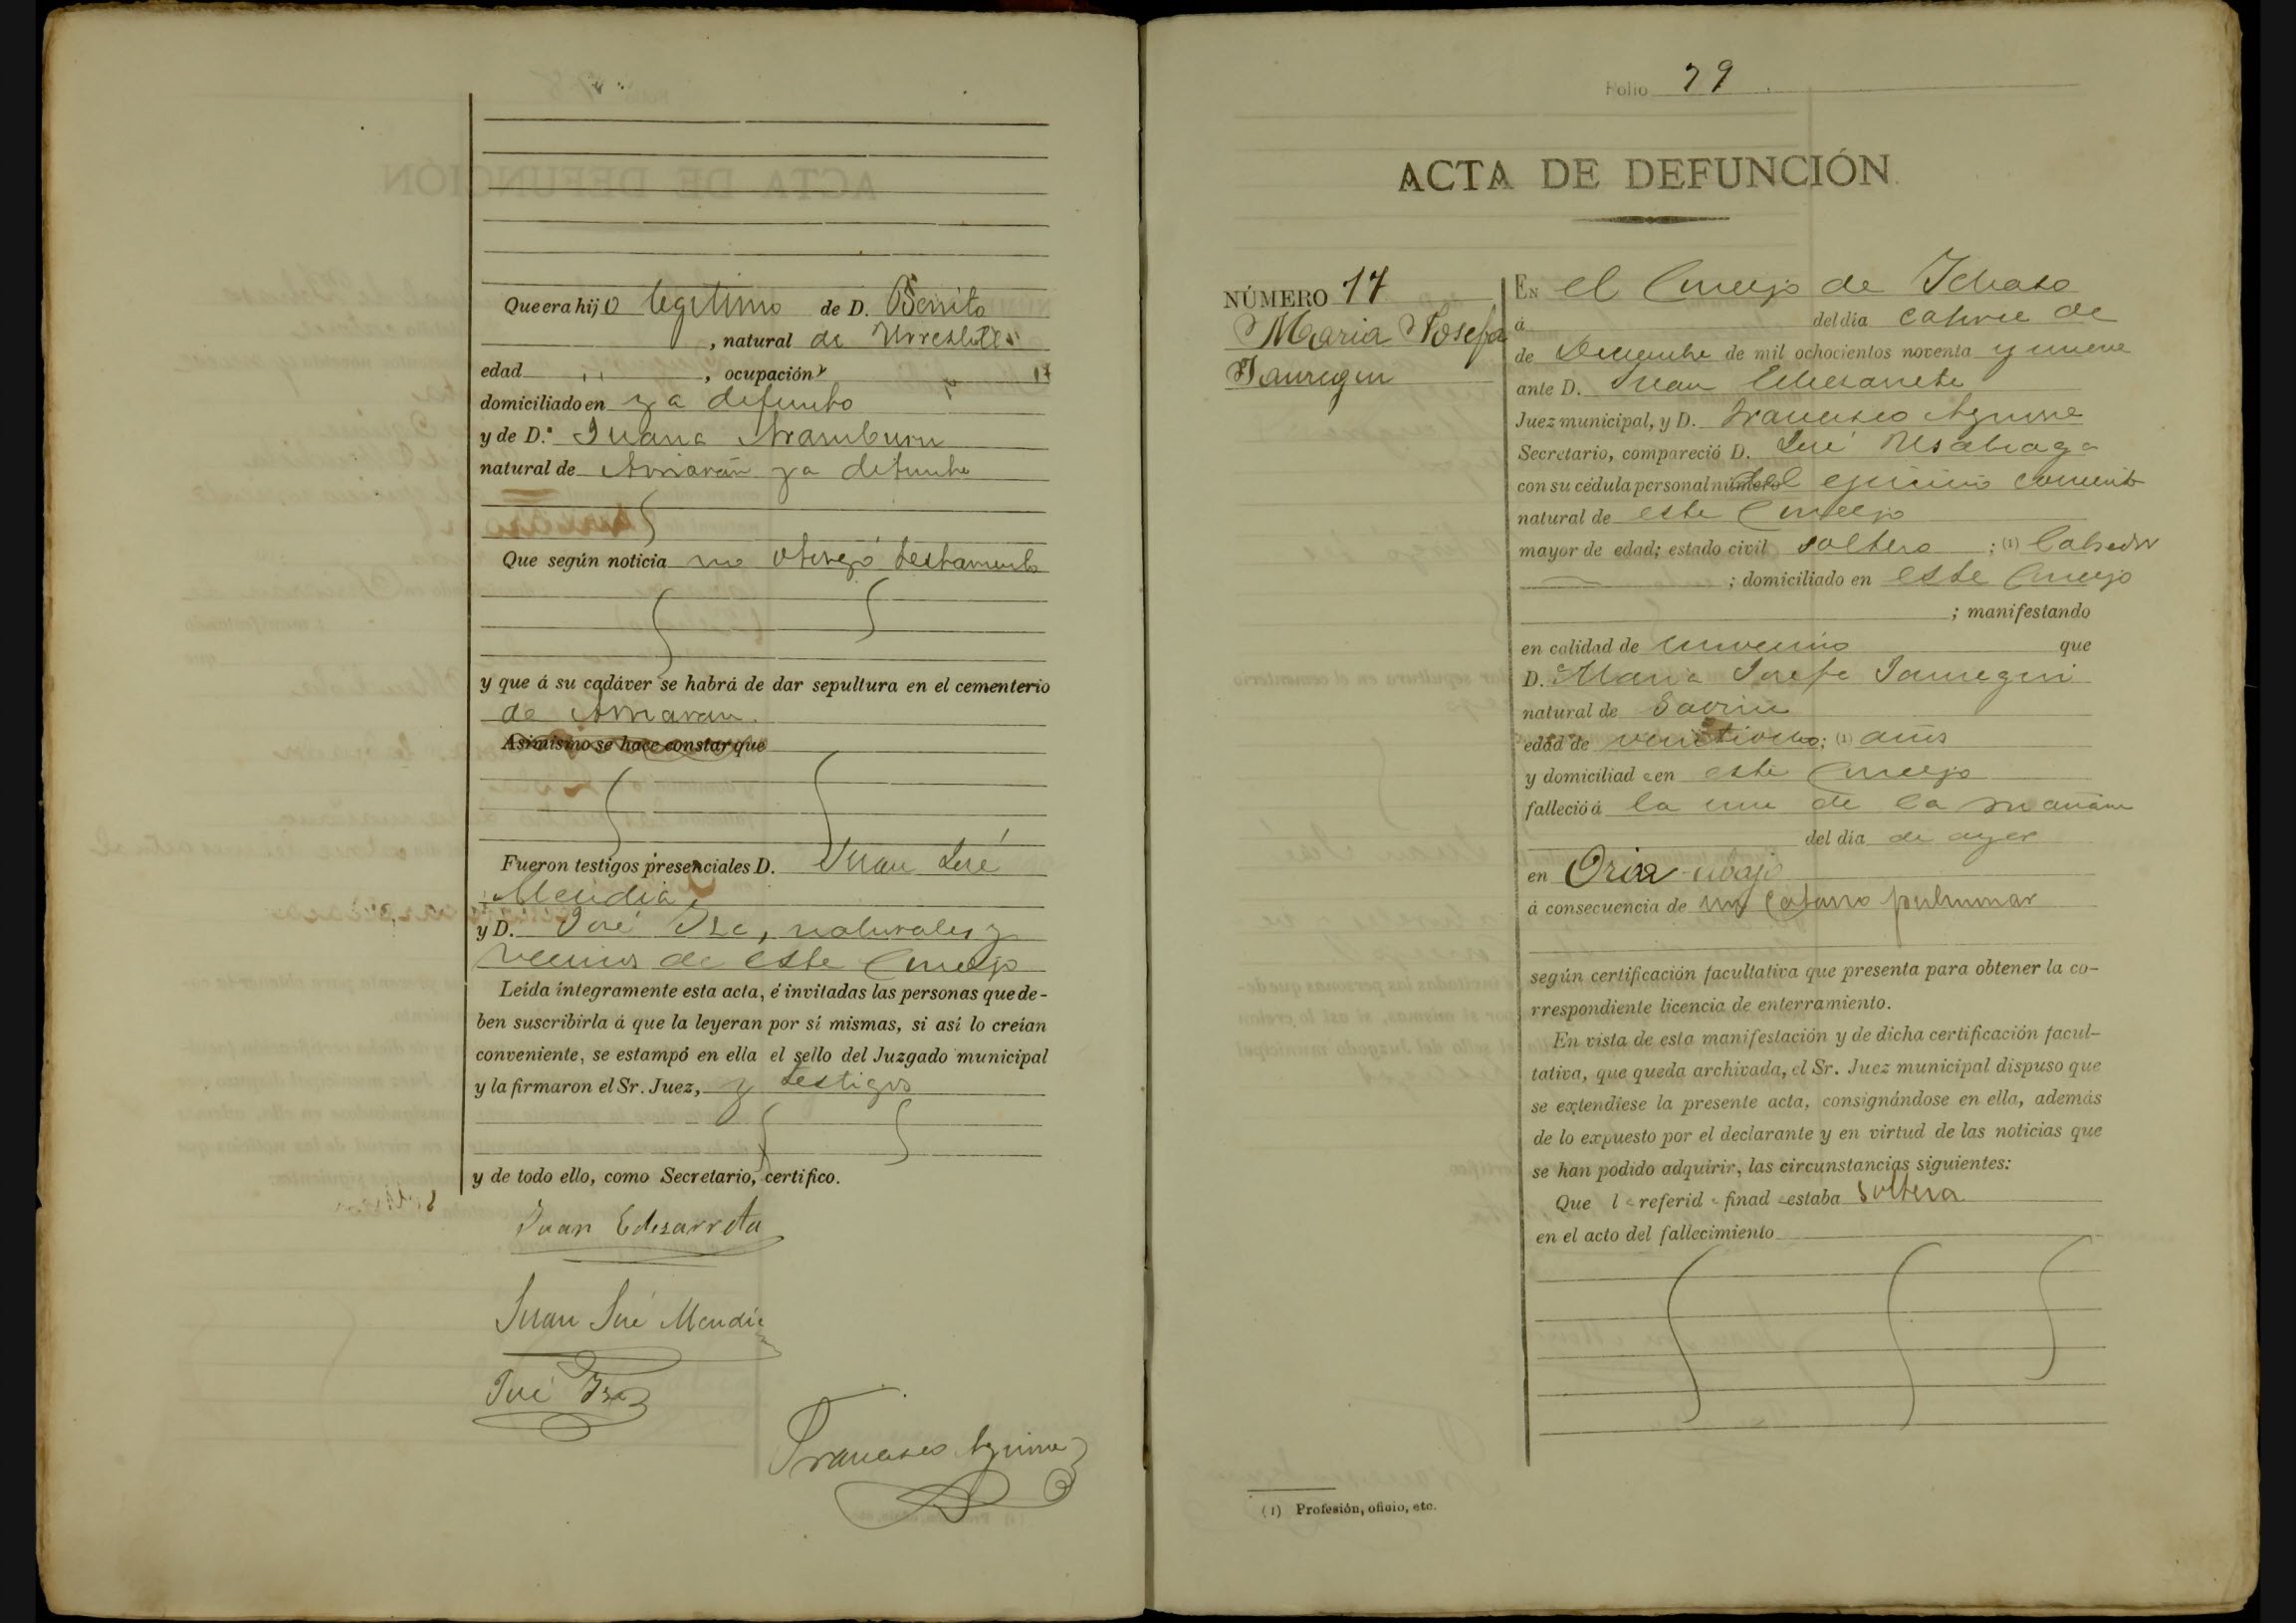 Que era hijo legitimo de D. Benito
, natural de Urrestilla
edad " , ocupación "
domiciliado en ya defunto
y de D.ª Juana Aramburu
natural de Amiarán ya defunta
Que según noticia no otorgó testamento
y que á su cadáver se habrá de dar sepultura en el cementerio
de Amaran.
Asimismo se hace constar que
Fueron testigos presenciales D. Juan José
Mendia
y D. José Isa, naturales y
vecinos de este Concejo
Leída íntegramente esta acta, é invitadas las personas que de-
ben suscribirla á que la leyeran por sí mismas, si así lo creían
conveniente, se estampó en ella el sello del Juzgado municipal
y la firmaron el Sr. Juez, y testigos
y de todo ello, como Secretario, certifico.
Juan Echezarreta
Juan José Mendia
José Isa
Francisco Aguirre
Folio 79
ACTA DE DEFUNCIÓN
NÚMERO 17
Maria Josefa
Jauregui
EN el Concejo de Ichaso
á del día catorce de
de Diciembre de mil ochocientos noventa y nueve
ante D. Juan Echezarreta
Juez municipal, y D. Francisco Aguirre
Secretario, compareció D. José Usabiaga
con su cédula personal número del ejercicio corriente
natural de este Concejo
mayor de edad; estado civil soltero ; (1) labrador
; domiciliado en este Concejo
; manifestando
en calidad de convecino que
D.ª Maria Josefa Jauregui
natural de Gaviria
edad de ; (1) años
y domiciliada en este Concejo
falleció á la una de la mañana
del día de ayer
en Oria-abajo
á consecuencia de un Catarro pulmonar
según certificación facultativa que presenta para obtener la co-
rrespondiente licencia de enterramiento.
En vista de esta manifestación y de dicha certificación facul-
tativa, que queda archivada, el Sr. Juez municipal dispuso que
se extendiese la presente acta, consignándose en ella, además
de lo expuesto por el declarante y en virtud de las noticias que
se han podido adquirir, las circunstancias siguientes:
Que la referida finada estaba soltera
en el acto del fallecimiento
(1) Profesión, oficio, etc.